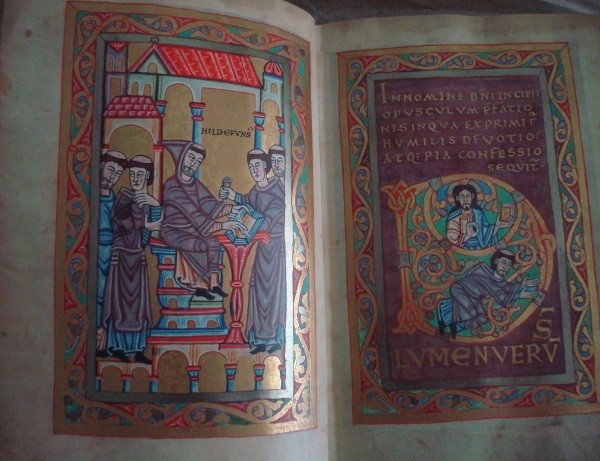 HILDEFUNS
INNOMINE DNI INCIPIT
OPUSCULUM PFATIO
NISINQUA EXPRIMIT̃
HUMILIS DEVOTIO
ATQ; PIA CONFESSIO
SEQUIT̃
DS̄
LVMENVERV̄